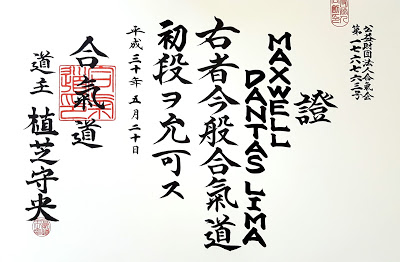 公益財団法人合気会
第一七六七六三号
證
MAXWELL
DANTAS LIMA
右者今般合氣道
初段ヲ允可ス
平成三十年五月二十日
合氣道
道主 植芝守央